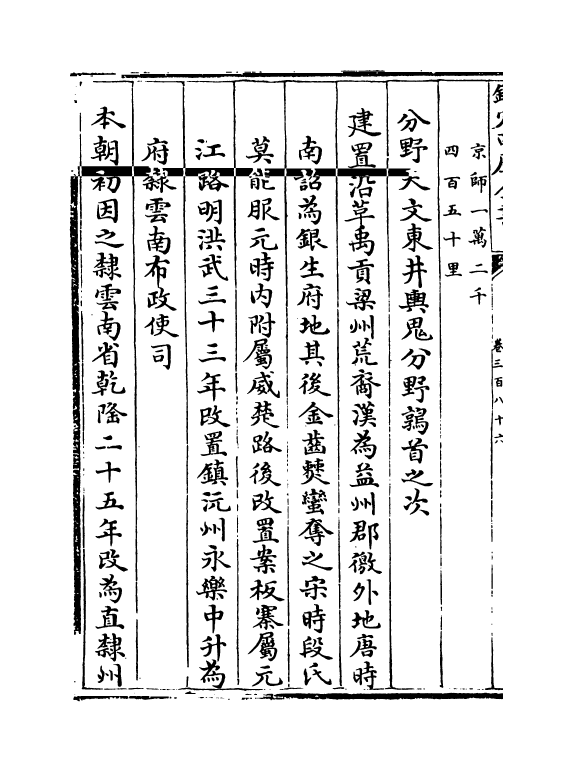 欽定四庫全書
卷三百八十六
京師一萬二千
四百五十里
分野天文東井輿鬼分野鶉首之次
建置沿革禹貢梁州荒裔漢為益州郡徼外地唐時
南詔為銀生府地其後金齒僰蠻奪之宋時段氏
莫能服元時内附屬威楚路後改置案板寨屬元
江路明洪武三十三年改置鎮沅州永樂中升為
府隸雲南布政使司
本朝初因之隸雲南省乾隆二十五年改為直隸州